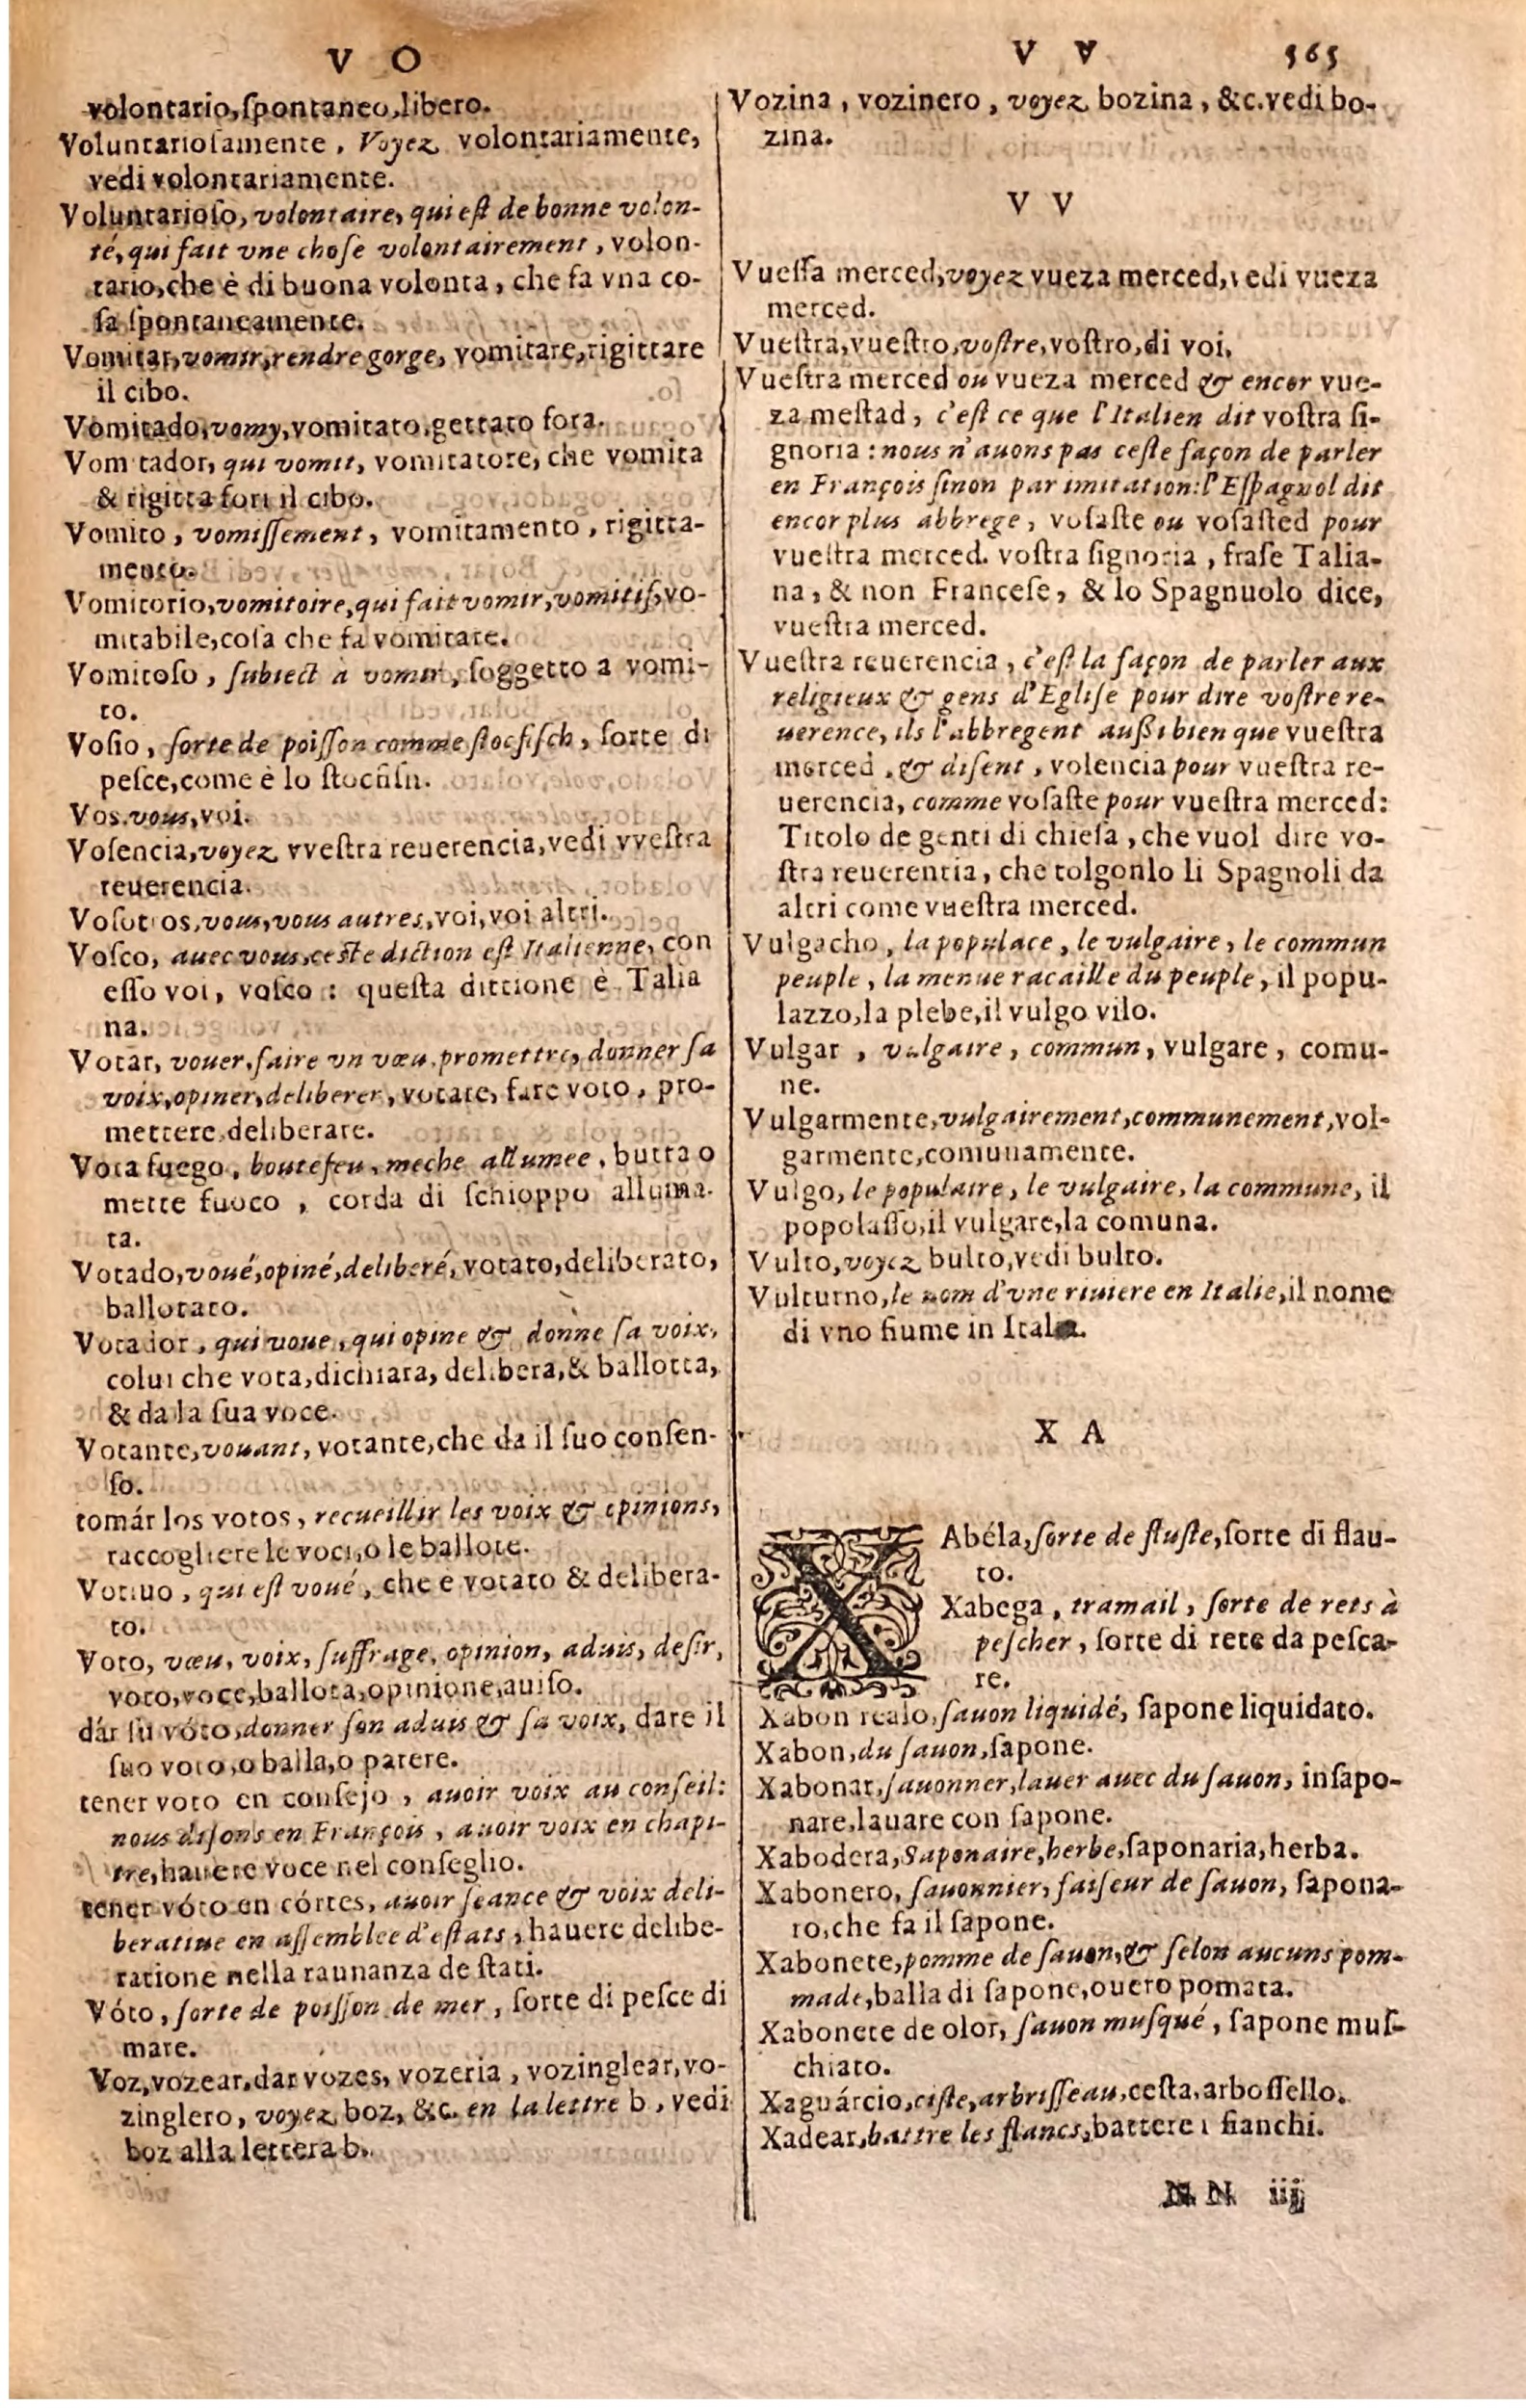 V O
volontario,ſpontaneo,libero.
Voluntarioſamente, Voyez volontariamente,
vedi volontariamente.
Voluntarioſo, volontaire, qui eſt de bonne volon-
té, qui fait vne choſe volontairement, volon-
tario,che è di buona volonta, che fa vna co-
ſa ſpontaneamente.
Vomitar,vomir,rendre gorge, vomitare,rigittare
il cibo.
Vomitado,vomy,vomitato,gettato fora.
Vom tador, qui vomit, vomitatore, che vomita
& rigitta fori il cibo.
Vomito, vomiſſement, vomitamento, rigitta-
mento.
Vomitorio,vomitoire,qui fait vomir,vomitif,vo-
mitabile,coſa che fa vomitare.
Vomitoſo, ſubiect à vomir, ſoggetto a vomi-
to.
Voſio, ſorte de poiſſon comme ſtocfiſch, ſorte di
peſce,come è lo ſtocfiſh.
Vos,vous,voi.
Voſencia,voyez vveſtra reuerencia,vedi vveſtra
reuerencia.
Voſotros,vous,vous autres,voi,voi altri.
Voſco, auec vous,ceſte diction eſt Italienne, con
eſſo voi, voſco: queſta dittione è Talia
na.
Votar, vouer,faire vn vœu,promettre, donner ſa
voix,opiner,deliberer, votare, fare voto, pro-
mettere,deliberare.
Vota fuego, boutefeu, meche allumee, butta o
mette fuoco, corda di ſchioppo alluma-
ta.
Votado,voué,opiné,deliberé, votato,deliberato,
ballotato.
Votador, qui voue, qui opine & donne ſa voix,
colui che vota,dichiara, delibera,& ballotta,
& da la ſua voce.
Votante,vouant, votante,che da il ſuo conſen-
ſo.
tomár los votos, recueillir les voix & opinions,
raccogliere le voci,o le ballote.
Votiuo, qui eſt voué, che e votato & delibera-
to.
Voto, vœu, voix, ſuffrage, opinion, aduis, deſir,
voto,voce,ballota,opinione,auiſo.
dár ſu vóto,donner ſon aduis & ſa voix, dare il
ſuo voto,o balla,o parere.
tener voto en conſejo, auoir voix au conſeil:
nous diſons en François, auoir voix en chapi-
tre,hauere voce nel conſeglio.
tener vóto en córtes, auoir ſeance & voix deli-
beratiue en aſſemblee d'eſtats, hauere delibe-
ratione nella raunanza de ſtati.
Vóto, ſorte de poiſſon de mer, ſorte di peſce di
mare.
Voz,vozear,dar vozes, vozeria, vozinglear,vo-
zinglero, voyez boz, &c. en la lettre b, vedi
boz alla lettera b.
V V 565
Vozina, vozinero, voyez bozina, &c.vedi bo-
zina.
V V
Vueſſa merced,voyez vueza merced,vedi vueza
merced.
Vueſtra,vueſtro,voſtre,voſtro,di voi.
Vueſtra merced ou vueza merced & encor vue-
za meſtad, c'eſt ce que l'Italien dit voſtra ſi-
gnoria: nous n'auons pas ceſte façon de parler
en François ſinon par imitation: l'Eſpagnol dit
encor plus abbrege, voſaſte ou voſaſted pour
vueſtra merced. voſtra ſignoria, fraſe Talia-
na, & non Franceſe, & lo Spagnuolo dice,
vueſtra merced.
Vueſtra reuerencia, c'eſt la façon de parler aux
religieux & gens d'Egliſe pour dire voſtre re-
uerence, ils l'abbregent außi bien que vueſtra
merced, & diſent, volencia pour vueſtra re-
uerencia, comme voſaſte pour vueſtra merced:
Titolo de genti di chieſa, che vuol dire vo-
ſtra reuerentia, che tolgonlo li Spagnoli da
altri come vueſtra merced.
Vulgacho, la populace, le vulgaire, le commun
peuple, la menue racaille du peuple, il popu-
lazzo,la plebe,il vulgo vilo.
Vulgar, vulgaire, commun, vulgare, comu-
ne.
Vulgarmente,vulgairement,communement,vol-
garmente,comunamente.
Vulgo, le populaire, le vulgaire, la commune, il
popolaſſo,il vulgare,la comuna.
Vulto,voyez bulto,vedi bulto.
Vulturno,le nom d'vne riuiere en Italie,il nome
di vno fiume in Italia.
X A
XAbéla,ſorte de fluſte,ſorte di flau-
to.
Xabega, tramail, ſorte de rets à
peſcher, ſorte di rete da peſca-
re.
Xabon realo,ſauon liquidé, ſapone liquidato.
Xabon,du ſauon,ſapone.
Xabonar,ſauonner,lauer auec du ſauon, inſapo-
nare,lauare con ſapone.
Xabodera,Saponaire,herbe,ſaponaria,herba.
Xabonero, ſauonnier, faiſeur de ſauon, ſapona-
ro,che fa il ſapone.
Xabonete,pomme de ſauon,& ſelon aucuns pom-
made,balla di ſapone,ouero pomata.
Xabonete de olor, ſauon muſqué, ſapone muſ-
chiato.
Xaguárcio,ciſte,arbriſſeau,ceſta,arboſſello.
Xadear,battre les flancs,battere i fianchi.
NN iij